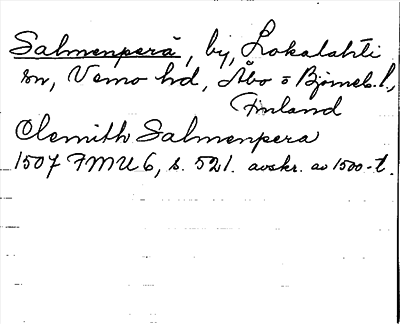 Salmenperä, by, Lokalahti
sn, Vemo hd, Åbo o Björneb. l.,
Finland
Clemith Salmenpera
1507 FMU 6, s. 521. avskr. av 1500-t.